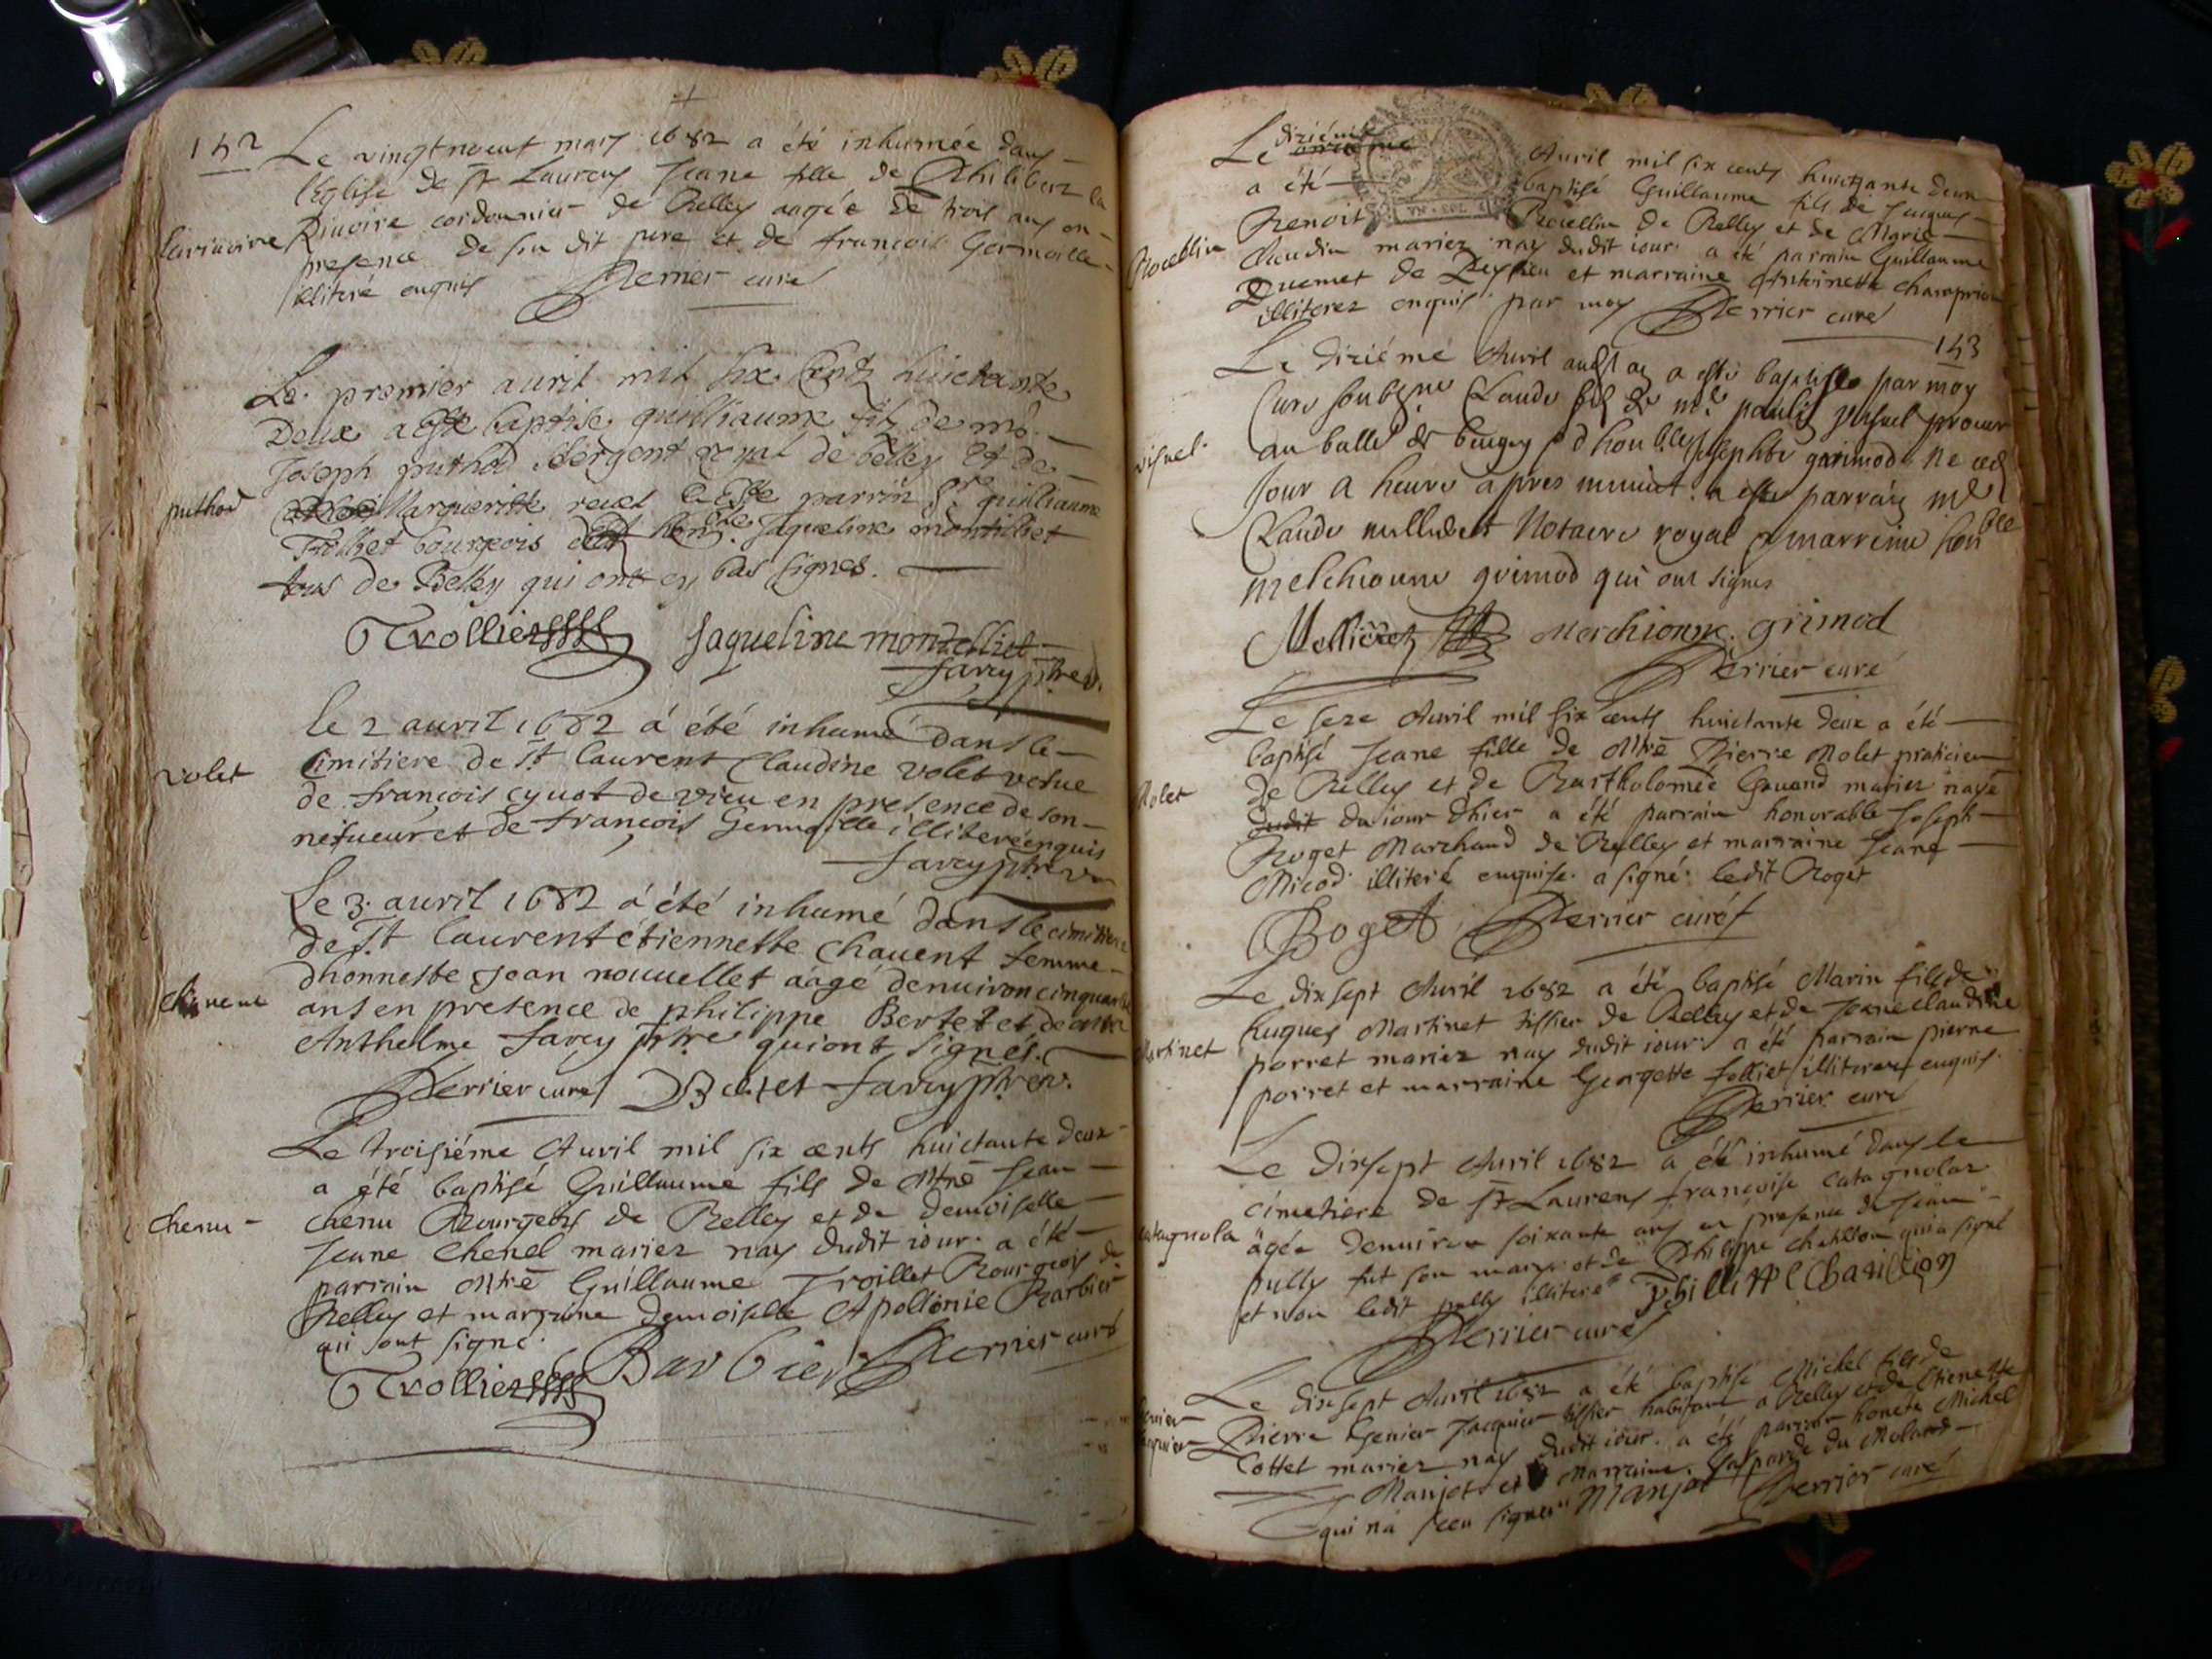 152
Le vingtneuf mars 1682 a été inhumée dans
l'Eglise de St Laurens Jeane fille de Philibert la
larivoire
Rivoire cordounier de Belley aagée de trois ans en
presence de son dit pere et de françois Germaille
illiteré enquis Perrier curé
Le premier auril mil six Centz huictante
Deux a Esté baptise guilliaume filz de mr
Joseph puthod sergent royal de belley Et de
puthod
Marguerite a Esté parrin Sre guilliaume
Trolliet bourgeois Et honeble Jaqueline montilliet
tous de Belley qui ont en bas signes.
Trollier Jaqueline montelliet
farcy ptre v.
le 2 auril 1682 à été inhumé dans le
volet
Cimitiere de St laurent Claudine volet vefue
de françois cyuot de vieu en presence de son
nefueur et de françois Germaille illiteré enquis
farcy ptre v
Le 3. auril 1682 à été inhumé dans le cimitiere
de St laurent étiennette chauent femme
dhonneste Jean nouuellet aagé denuiron cinquante
ans en presence de philippe Bertet et de
Anthelme farcy ptre qui ont signés.
Perrier curé Bertet farcy ptre v.
Le troisiéme Auril mil six cents huictante deux
a été baptisé Guillaume fils de Mtre Jean
chenu
chenu Bourgeois de Belley et de demoiselle
Jeane Chenel mariez nay dudit iour. a été
parrain Mtre Guillaume Troillet Bourgeois de
Belley et marraine demoiselle Apollonie Barbier
qui ont signé.
Trollier Barbier Perrier curé
Le diziéme Auril mil six cents huictante deux
a été baptisé Guillaume fils de Jacques
Benoit Rouellin de Belley et de Marie
Claudin mariez nay dudit iour. a été parrain Guillaume
Ducmet de et marraine Antoinette
illiterez enquis par moy Perrier curé
153
Le diziémé Auril audst an a esté baptise par moy
Curé soubsne Claude filz de mre
visnel
au balle de beugey Josephte grimod ne
Jour a heure apres minuit. a este parrain mre
Claude Notaire royal & marreine honble
melchionne grimod qui ont signes
Mellierez Merchionne grimod
Perrier curé
Le seze Auril mil six cents huictante deux a été
baptisé Jeane fille de Mtre Pierre Molet praticien
Molet
de Belley et de Bartholomée mariez nayé
dudit du iour dhier a été parrain honorable Joseph
Roget Marchand de Belley et marraine Jeane
Micod illiteré enquise. a signé ledit Roget
Roget Perrier curé
Le dixsept Auril 1682 a été baptisé Marin fils de
Hugues Martinet tissier de Belley et de Jeane Claudine
Martinet
porret mariez nay dudit iour. a été parrain pierre
porret et marraine Georgette folliet illiterez enquis.
Perrier curé
Le dixsept Auril 1682 a été inhumé dans le
cimetiere de St Laurens françoise Catagnolaz
Catagnola
âgée denuiron soixante ans en presence de Jean
pully fut son mary et de Philippe chatillon qui a signé
et non ledit pully illiteré Phillippe Chatillon
Perrier curé
Le dixsept Auril 1682 a été baptisé Michel fils de
Pierre Genier Jacquier tissier habitant a Belley et de Etienette
Cottet mariez nay dudit iour. a été parrain honete Michel
Manjot et marraine Gasparde du Molard
qui na sceu signer Manjot Perrier curé